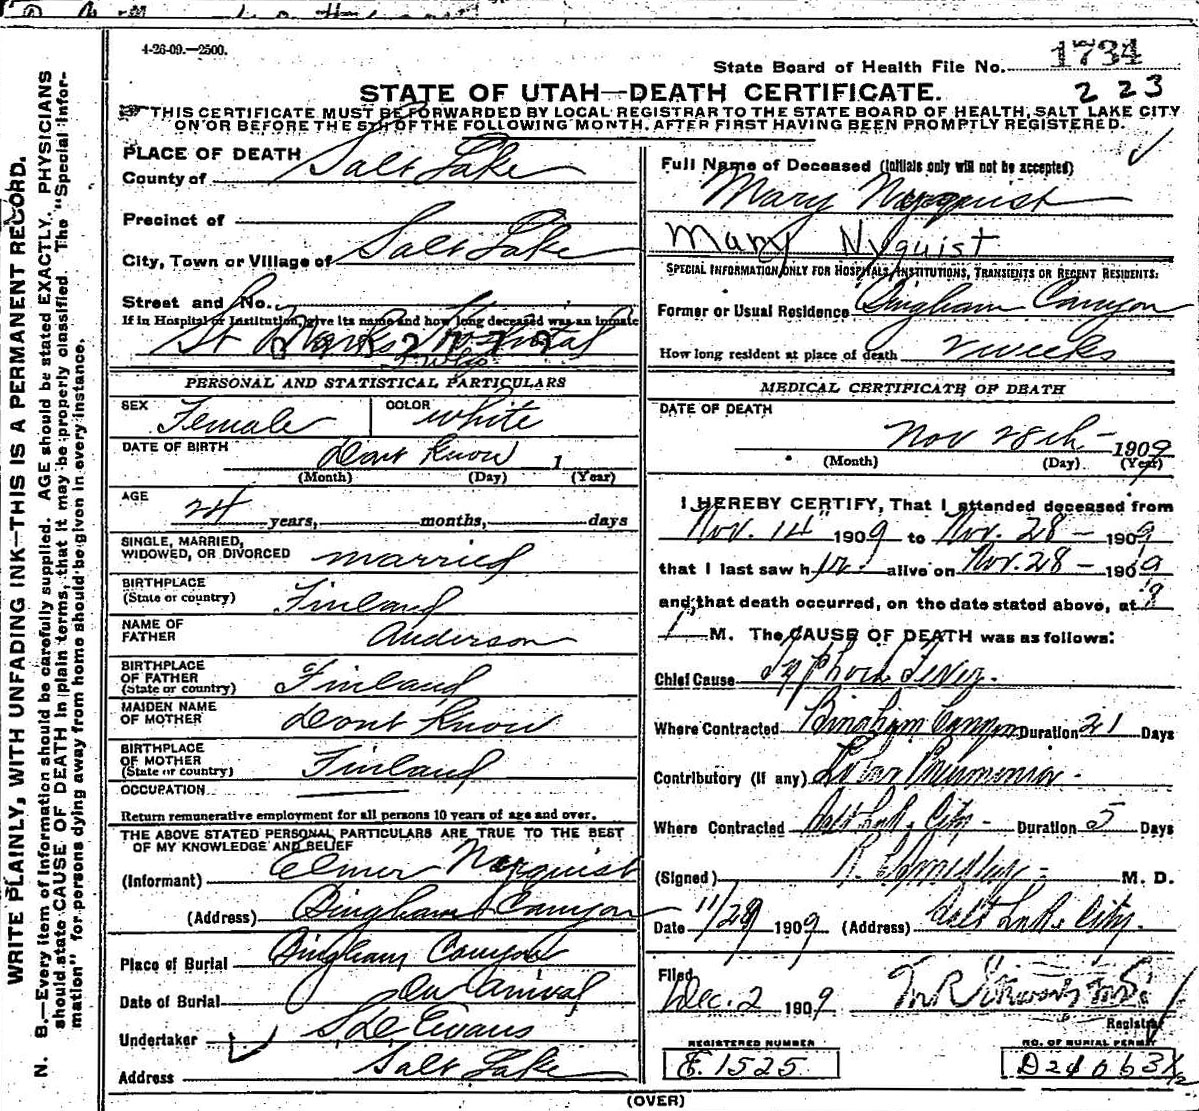 4-26-09.—2500.
State Board of Health File No. 1734
223
STATE OF UTAH—DEATH CERTIFICATE.
THIS CERTIFICATE MUST BE FORWARDED BY LOCAL REGISTRAR TO THE STATE BOARD OF HEALTH, SALT LAKE CITY
ON OR BEFORE THE 5TH OF THE FOLLOWING MONTH, AFTER FIRST HAVING BEEN PROMPTLY REGISTERED.
WRITE PLAINLY, WITH UNFADING INK—THIS IS A PERMANENT RECORD.
N. B.—Every item of information should be carefully supplied. AGE should be stated EXACTLY. PHYSICIANS
should state CAUSE OF DEATH in plain terms, that it may be properly classified. The "Special Infor-
mation" for persons dying away from home should be given in every instance.
PLACE OF DEATH
County of Salt Lake
Precinct of
City, Town or Village of Salt Lake
Street and No.
If in Hospital or Institution, give its name and how long deceased was an inmate
St Marks Hospital
2 wks
PERSONAL AND STATISTICAL PARTICULARS
SEX Female COLOR white
DATE OF BIRTH Dont Know 1
(Month) (Day) (Year)
AGE
24 years, months, days
SINGLE, MARRIED,
WIDOWED, OR DIVORCED married
BIRTHPLACE
(State or country) Finland
NAME OF
FATHER Anderson
BIRTHPLACE
OF FATHER
(State or country) Finland
MAIDEN NAME
OF MOTHER Dont Know
BIRTHPLACE
OF MOTHER
(State or country) Finland
OCCUPATION
Return remunerative employment for all persons 10 years of age and over.
THE ABOVE STATED PERSONAL PARTICULARS ARE TRUE TO THE BEST
OF MY KNOWLEDGE AND BELIEF
(Informant) Elmer Nyquist
(Address) Bingham Canyon
Place of Burial Bingham Canyon
Date of Burial On Arrival
Undertaker S. D. Evans
Address Salt Lake
Full Name of Deceased (initials only will not be accepted)
Mary Nyquist
Mary Nyquist
SPECIAL INFORMATION ONLY FOR HOSPITALS, INSTITUTIONS, TRANSIENTS OR RECENT RESIDENTS:
Former or Usual Residence Bingham Canyon
How long resident at place of death 2 weeks
MEDICAL CERTIFICATE OF DEATH
DATE OF DEATH
Nov 28th 1909
(Month) (Day) (Year)
I HEREBY CERTIFY, That I attended deceased from
Nov. 14 1909 to Nov. 28 1909
that I last saw her alive on Nov. 28 1909
and that death occurred, on the date stated above, at 8
M. The CAUSE OF DEATH was as follows:
Chief Cause Typhoid Fever.
Where Contracted Bingham Canyon Duration 21 Days
Contributory (if any) Lobar Pneumonia
Where Contracted Salt Lake City Duration 5 Days
(Signed) M. D.
Date 11/29 1909 (Address) Salt Lake City.
Filed
Dec. 2 1909
Registrar
REGISTERED NUMBER NO. OF BURIAL PERMIT
E. 1525
(OVER)